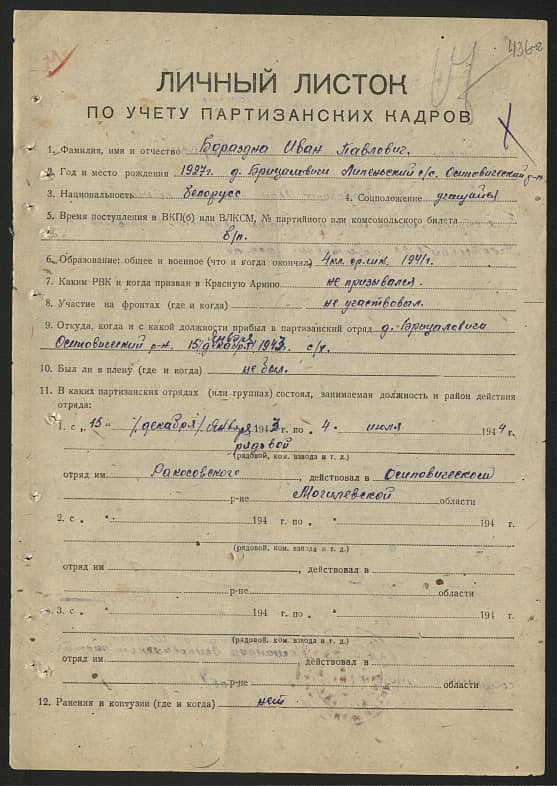 ЛИЧНЫЙ ЛИСТОК
ПО УЧЕТУ ПАРТИЗАНСКИХ КАДРОВ
1. Фамилия, имя и отчество Бораздна Иван Павлович.
2. Год и место рождения 1927г. д. Брицаловичи Липеньский с/с. Осиповический р-н
3. Национальность Белорусс 4. Соцположение учащийся
5. Время поступления в ВКП(б) или ВЛКСМ, № партийного или комсомольского билета
б/п.
6. Образование: общее и военное (что и когда окончил) 4 кл. 1941г.
7. Каким РВК и когда призван в Красную Армию не призывался.
8. Участие на фронтах (где и когда) не участвовал.
9. Откуда, когда и с какой должности прибыл в партизанский отряд д. Брицаловичи
Осиповический р-н. 15 /декабря/ января 1943г. с/х.
10. Был ли в плену (где и когда) не был.
11. В каких партизанских отрядах (или группах) состоял, занимаемая должность и район действия
отряда:
1. с „15" /декабря/ января 1943 г. по „4" июля 1944 г.
рядовой
(рядовой, ком. взвода и т. д.)
отряд им Ракосовского, действовал в Осиповическом
р-не Могилевской области
2. с „ " 194 г. по „ " 194 г.
(рядовой, ком. взвода и т. д.)
отряд им , действовал в
р-не области
3. с „ " 194 г. по „ " 194 г.
(рядовой, ком. взвода и т. д.)
отряд им действовал в
р-не области
12. Ранения и контузии (где и когда) нет